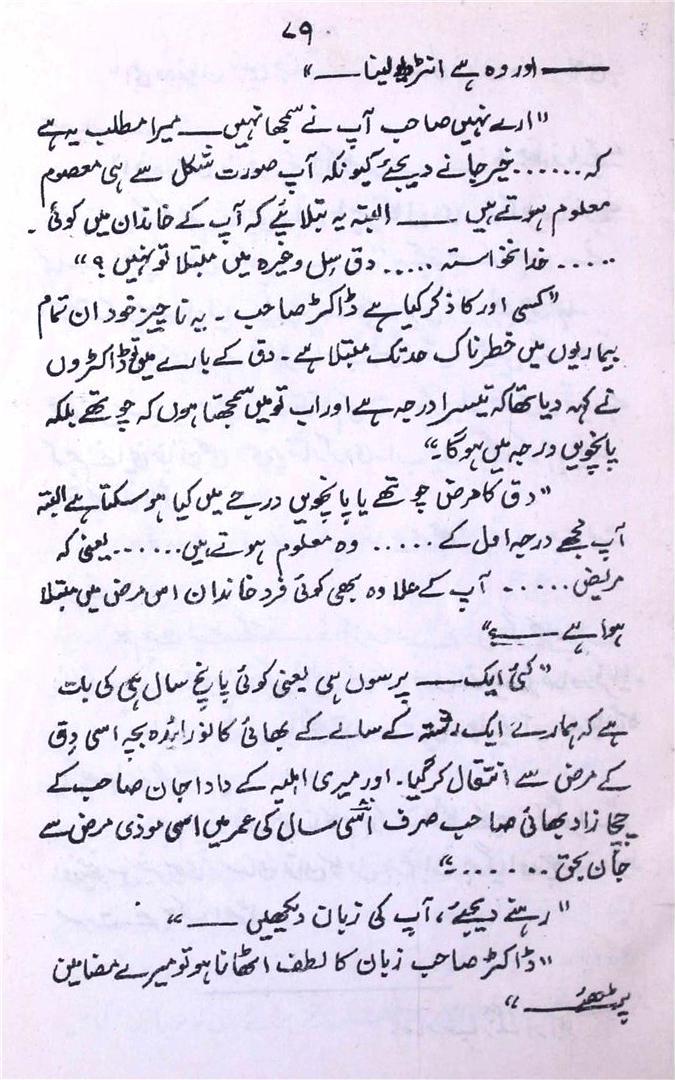 ۷۹
—— اور وہ ہے انٹرویو لینا —— "
"ارے نہیں صاحب آپ نے سمجھا نہیں —— میرا مطلب یہ ہے
کہ ...... خیر جانے دیجئے کیونکہ آپ صورت شکل سے ہی معصوم
معلوم ہوتے ہیں —— البتہ یہ بتلائیے کہ آپ کے خاندان میں کوئی ۔
..... خدانخواستہ ..... دق سِل وغیرہ میں مبتلا تو نہیں ؟"
"کسی اور کا ذکر کیا ہے ڈاکٹر صاحب ۔ یہ ناچیز خود ان تمام
بیماریوں میں خطرناک حد تک مبتلا ہے ۔ دق کے بارے میں تو ڈاکٹروں
نے کہہ دیا تھا کہ تیسرا درجہ ہے اور اب تو میں سمجھتا ہوں کہ چوتھے بلکہ
پانچویں درجہ میں ہوگا ۔"
"دق کا مرض چوتھے یا پانچویں درجے میں کیا ہو سکتا ہے البتہ
آپ مجھے درجہ اول کے ..... وہ معلوم ہوتے ہیں ...... یعنی کہ
مریض ..... آپ کے علاوہ بھی کوئی فرد خاندان اس مرض میں مبتلا
ہوا ہے —— ؟"
"کئی ایک —— پرسوں ہی یعنی کوئی پانچ سال ہی کی بات
ہے کہ ہمارے ایک رشتہ کے سالے کے بھائی کا نوزائدہ بچہ اسی دِق
کے مرض سے انتقال کر گیا ۔ اور میری اہلیہ کے دادا جان صاحب کے
چچا زاد بھائی صاحب صرف اسّی سال کی عمر میں اسی موذی مرض سے
جان بحق ....... "
"رہنے دیجئے ، آپ کی زبان دیکھیں —— "
"ڈاکٹر صاحب زبان کا لطف اٹھانا ہو تو میرے مضامین
پڑھئے —— "